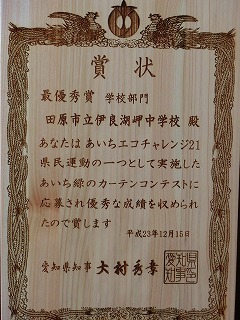 賞状
最優秀賞 学校部門
田原市立伊良湖岬中学校 殿
あなたは あいちエコチャレンジ21
県民運動の一つとして実施した
あいち緑のカーテンコンテストに
応募され優秀な成績を収められ
たので賞します
平成23年12月15日
愛知県知事 大村秀章